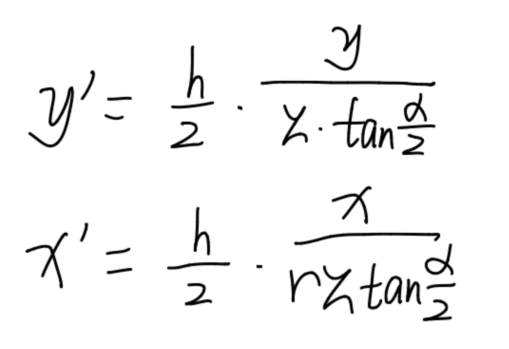 y' = h/2 · y/(z · tan α/2)
x' = h/2 · x/(rz tan α/2)